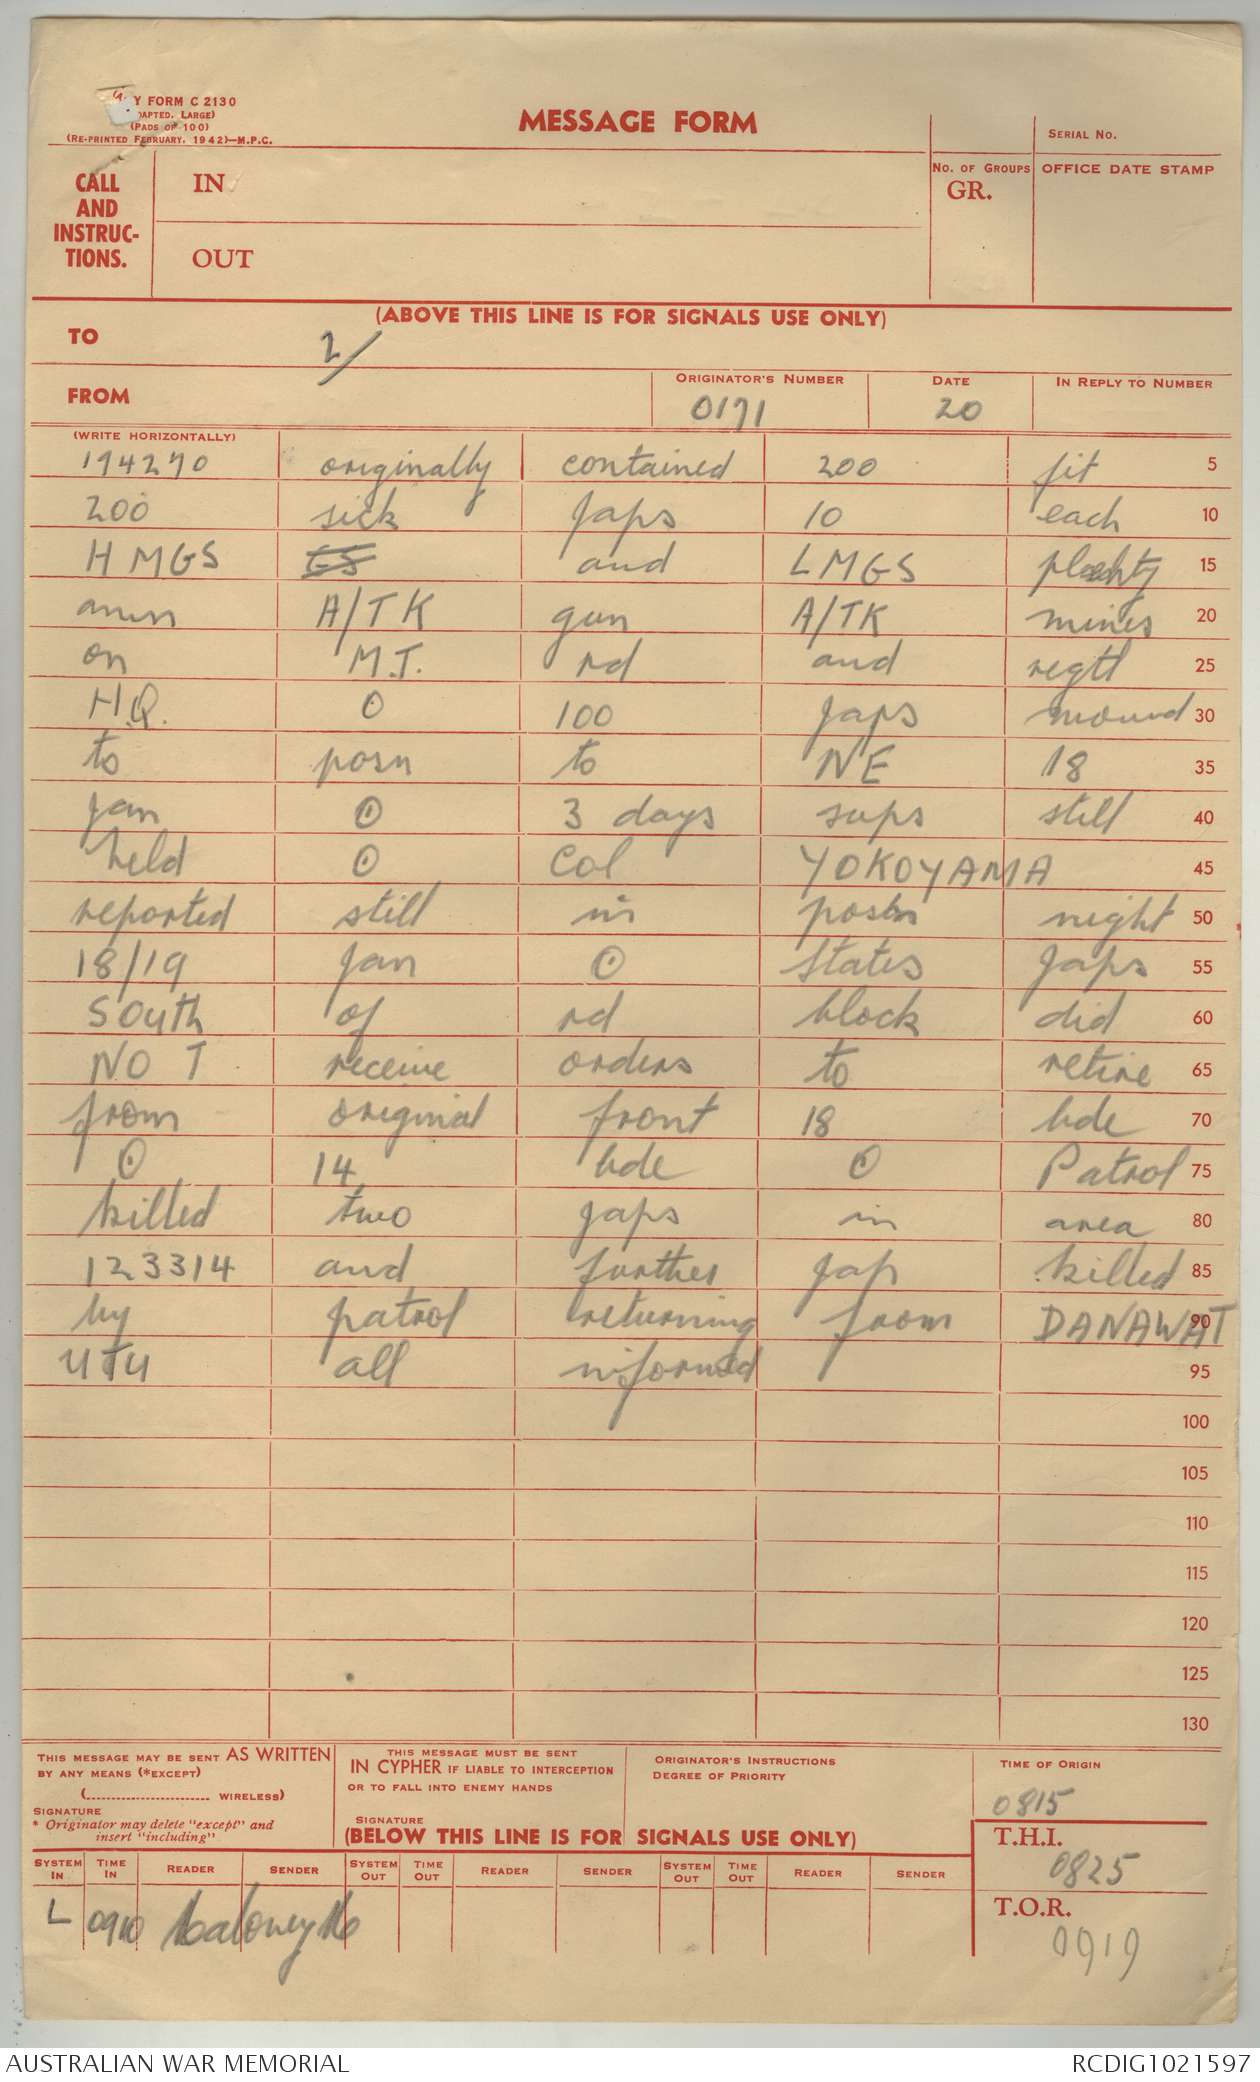 Y FORM C 2130
DAPTED, LARGE)
(PADS OF 100)
(RE-PRINTED FEBRUARY, 1942)—M.P.C.
MESSAGE FORM
SERIAL NO.
CALL AND INSTRUC-TIONS.
IN
OUT
NO. OF GROUPS
GR.
OFFICE DATE STAMP
(ABOVE THIS LINE IS FOR SIGNALS USE ONLY)
TO 2/
FROM
ORIGINATOR'S NUMBER 0171
DATE 20
IN REPLY TO NUMBER
(WRITE HORIZONTALLY)
194270 originally contained 200 fit 5
200 sick Japs 10 each 10
HMGS GS and LMGS plenty 15
amn A/TK gun A/TK mines 20
on M.T. rd and regtl 25
H.Q. O 100 Japs 30
to posn to NE 18 35
Jan O 3 days sups still 40
held O Col YOKOYAMA 45
reported still in posn night 50
18/19 Jan O states Japs 55
South of rd block did 60
NOT receive orders to retire 65
from original front 18 bde 70
O 14 bde O Patrol 75
killed two Japs in area 80
123314 and further Jap killed 85
by patrol returning from DANAWAT 90
all informed 95
100
105
110
115
120
125
130
THIS MESSAGE MAY BE SENT AS WRITTEN
BY ANY MEANS (*EXCEPT)
(........................... WIRELESS)
SIGNATURE
* Originator may delete "except" and
insert "including"
THIS MESSAGE MUST BE SENT
IN CYPHER IF LIABLE TO INTERCEPTION
OR TO FALL INTO ENEMY HANDS
SIGNATURE
ORIGINATOR'S INSTRUCTIONS
DEGREE OF PRIORITY
TIME OF ORIGIN
0815
(BELOW THIS LINE IS FOR SIGNALS USE ONLY)
T.H.I.
0825
SYSTEM IN TIME IN READER SENDER SYSTEM OUT TIME OUT READER SENDER SYSTEM OUT TIME OUT READER SENDER
L 0910
T.O.R.
0919
AUSTRALIAN WAR MEMORIAL
RCDIG1021597